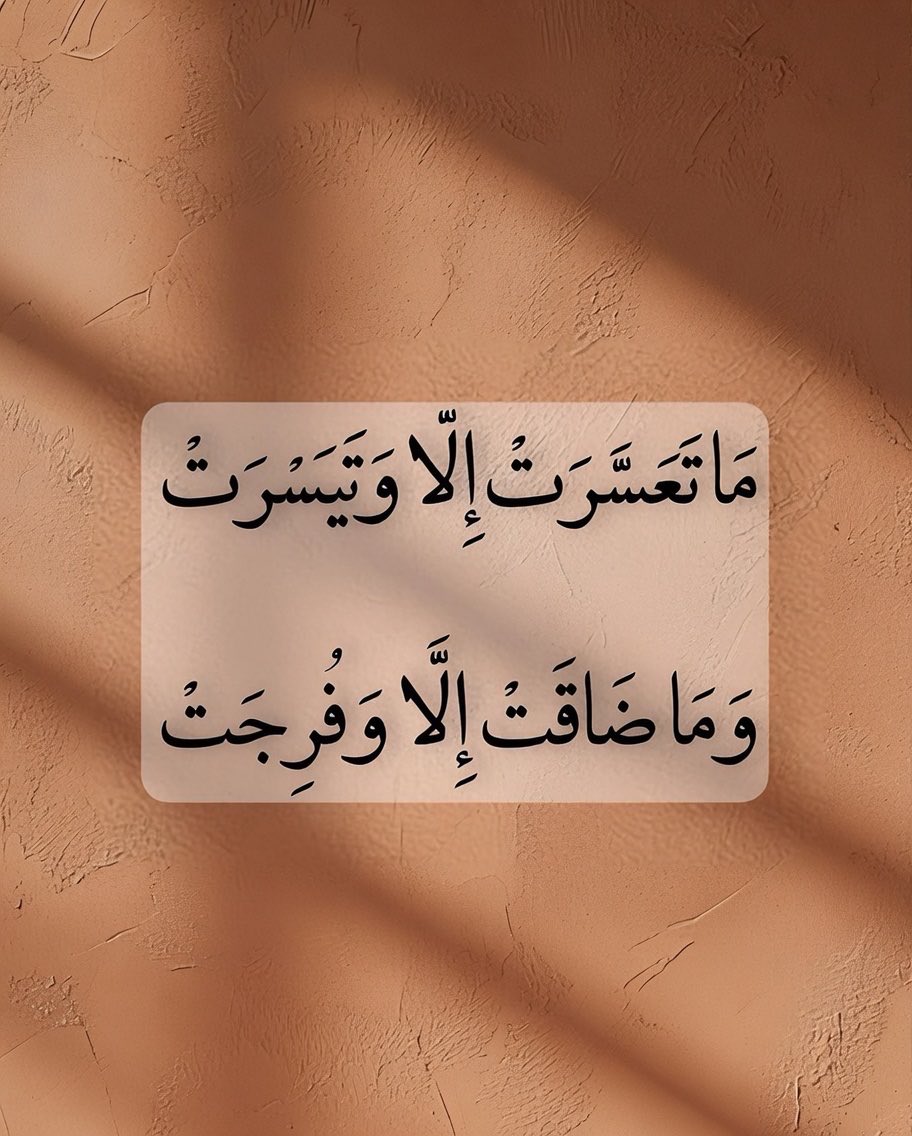 مَا تَعَسَّرَتْ إِلَّا وَتَيَسْرَتْ
وَمَا ضَاقَتْ إِلَّا وَفُرِجَتْ